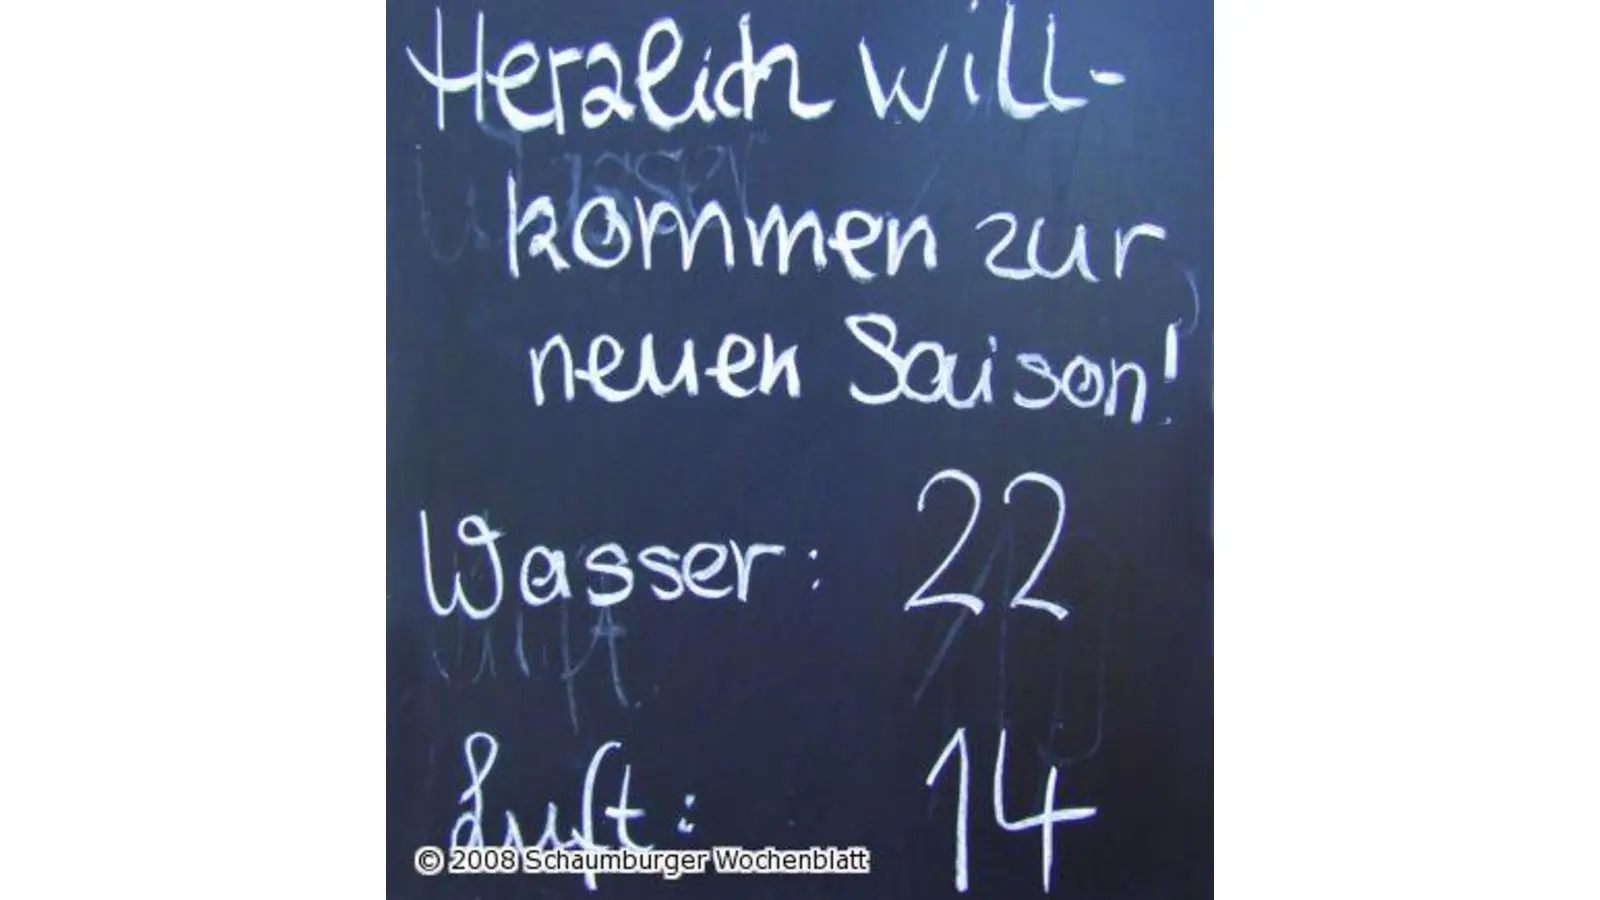 Herzlich will-
kommen zur
neuen Saison!
Wasser: 22
Luft: 14
© 2008 Schaumburger Wochenblatt